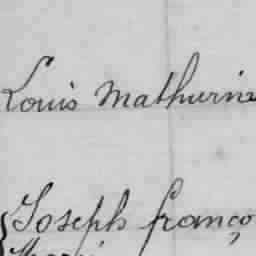 Louis Mathurin
Joseph franço